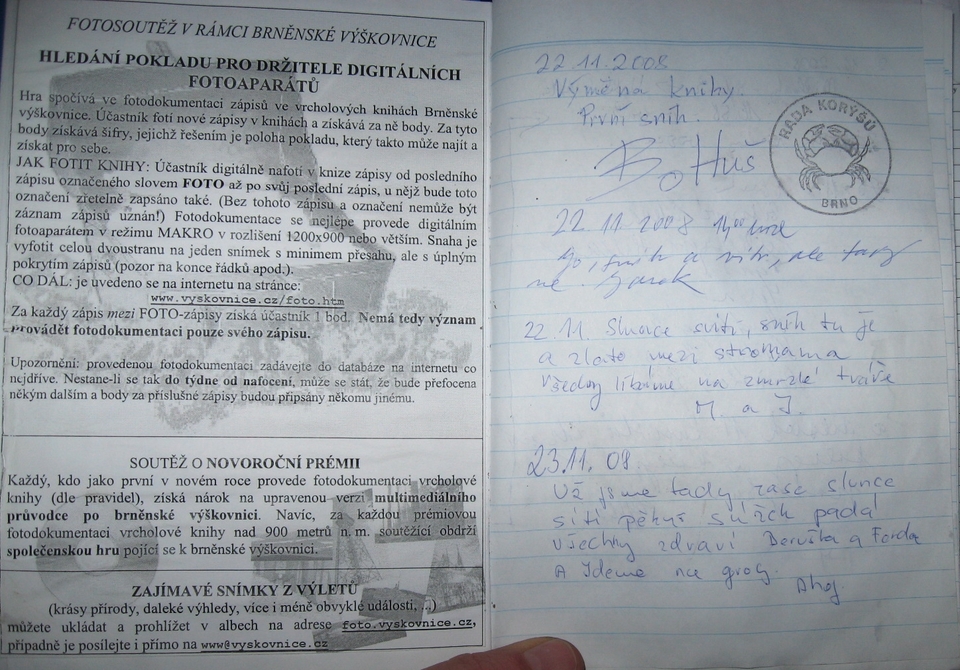 FOTOSOUTĚŽ V RÁMCI BRNĚNSKÉ VÝŠKOVNICE
HLEDÁNÍ POKLADU PRO DRŽITELE DIGITÁLNÍCH
FOTOAPARÁTŮ
Hra spočívá ve fotodokumentaci zápisů ve vrcholových knihách Brněnské
výškovnice. Účastník fotí nové zápisy v knihách a získává za ně body. Za tyto
body získává šifry, jejichž řešením je poloha pokladu, který takto může najít a
získat pro sebe.
JAK FOTIT KNIHY: Účastník digitálně nafotí v knize zápisy od posledního
zápisu označeného slovem FOTO až po svůj poslední zápis, u nějž bude toto
označení zřetelně zapsáno také. (Bez tohoto zápisu a označení nemůže být
záznam zápisů uznán!) Fotodokumentace se nejlépe provede digitálním
fotoaparátem v režimu MAKRO v rozlišení 1200x900 nebo větším. Snaha je
vyfotit celou dvoustranu na jeden snímek s minimem přesahu, ale s úplným
pokrytím zápisů (pozor na konce řádků apod.).
CO DÁL: je uvedeno se na internetu na stránce:
www.vyskovnice.cz/foto.htm
Za každý zápis mezi FOTO-zápisy získá účastník 1 bod. Nemá tedy význam
provádět fotodokumentaci pouze svého zápisu.
Upozornění: provedenou fotodokumentaci zadávejte do databáze na internetu co
nejdříve. Nestane-li se tak do týdne od nafocení, může se stát, že bude přefocena
někým dalším a body za příslušné zápisy budou připsány někomu jinému.
SOUTĚŽ O NOVOROČNÍ PRÉMII
Každý, kdo jako první v novém roce provede fotodokumentaci vrcholové
knihy (dle pravidel), získá nárok na upravenou verzi multimediálního
průvodce po brněnské výškovnici. Navíc, za každou prémiovou
fotodokumentaci vrcholové knihy nad 900 metrů n. m. soutěžící obdrží
společenskou hru pojící se k brněnské výškovnici.
ZAJÍMAVÉ SNÍMKY Z VÝLETŮ
(krásy přírody, daleké výhledy, více i méně obvyklé události, ...)
můžete ukládat a prohlížet v albech na adrese foto.vyskovnice.cz,
případně je posílejte i přímo na www@vyskovnice.cz
22 11.2008
Výměna knihy.
První sníh.
BoHuš
RADA KORÝŠŮ
BRNO
22 11 2008 14
sníh a vítr, ale tady
ne.
22.11. Slunce svítí, sníh tu je
a zlato mezi stromama
všechny líbáme na zmrzlé tváře
M. a J.
23.11. 08
Už jsme tady, zase slunce
sítí pěkně padá
všechny zdraví Beruška a Ferda
A Jdeme na grog.
Ahoj